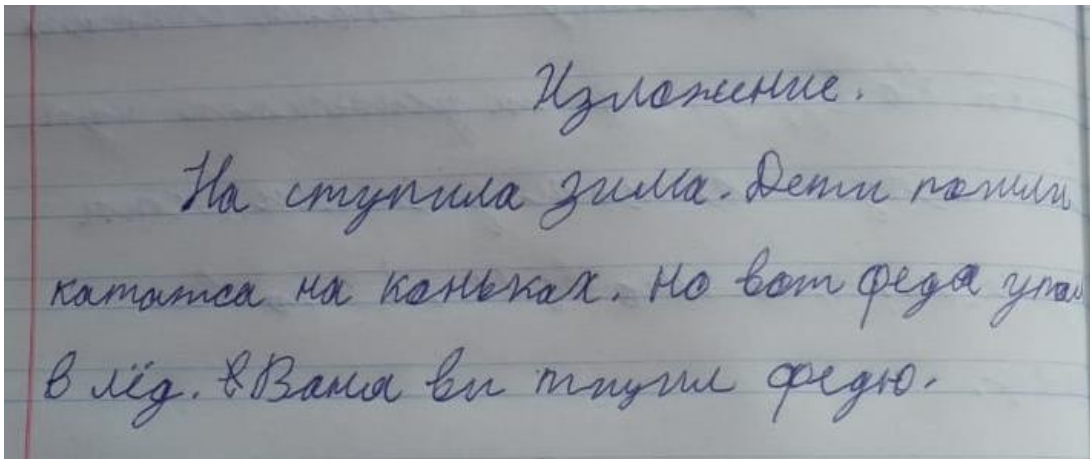 Изложение.
На ступила зима. Дети пошли
кататса на коньках. но вот федя упал
в лёд. Ваня ви тищил федю.